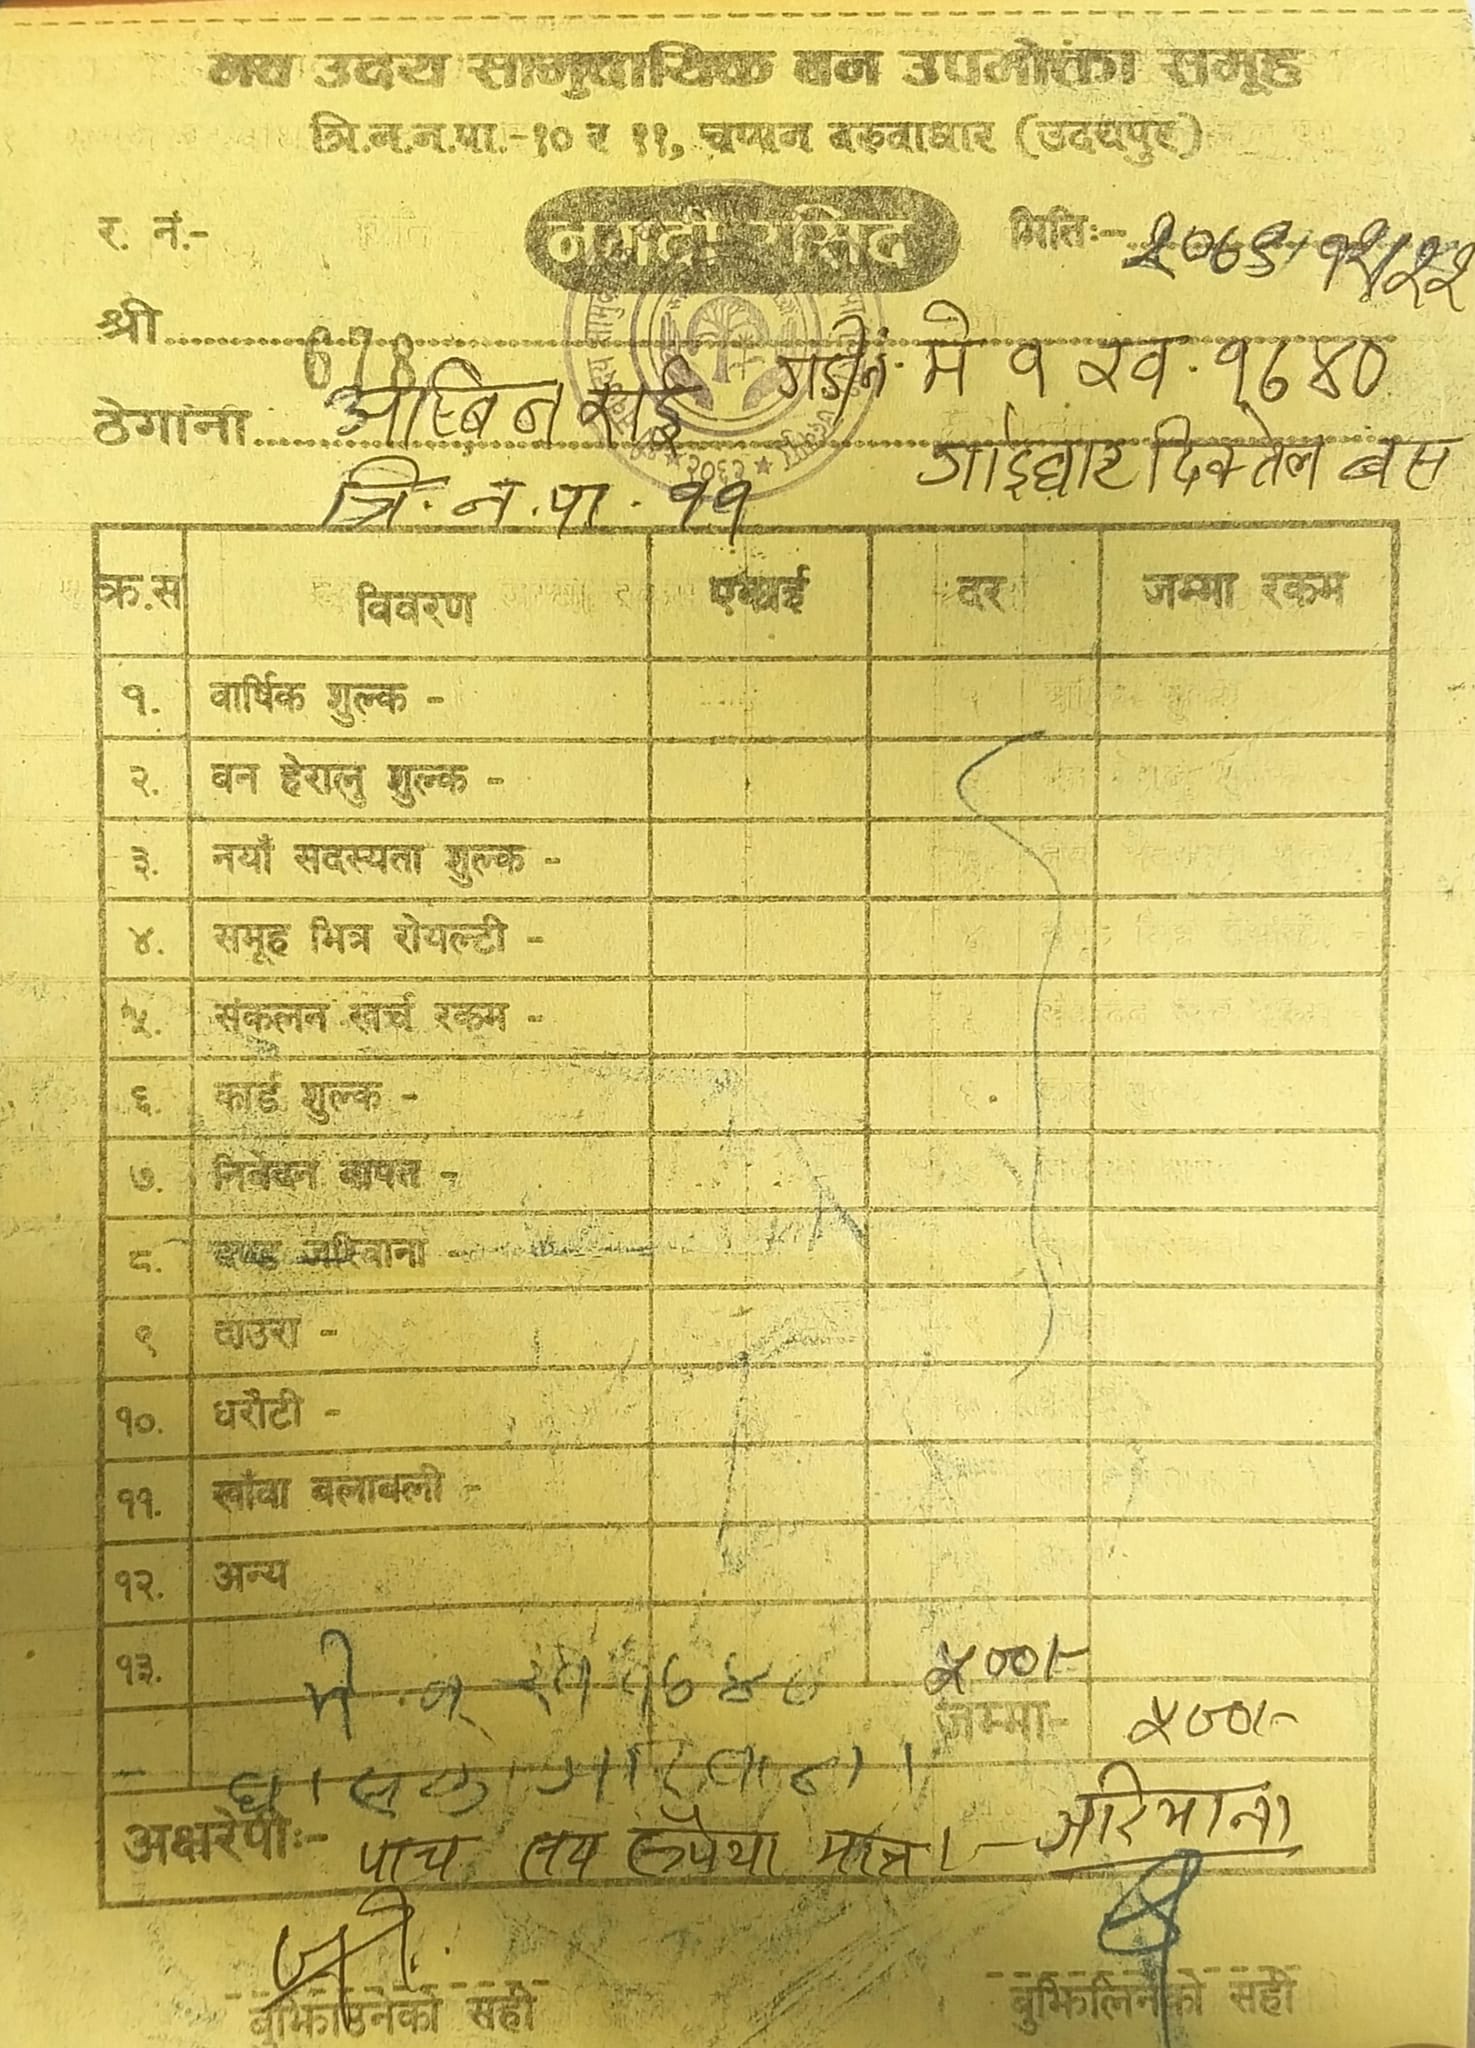 नव उदय सामुदायिक वन उपभोक्ता समूह
त्रि.न.न.पा.-१० र ११, चप्पन बरुवाधार (उदयपुर)
र. नं.- नगदी रसिद मितिः- २०७९/१२/२२
678
श्री
अश्बिन राई गाडी नं. मे १ ख. १८४०
ठेगाना २०६२
त्रि.न.पा. ११ गाईघाट दिक्तेल बस
क्र.स विवरण एकाई दर जम्मा रकम
१. वार्षिक शुल्क -
२. बन हेरालु शुल्क -
३. नयाँ सदस्यता शुल्क -
४. समूह भित्र रोयल्टी -
५. संकलन खर्च रकम -
६. कार्ड शुल्क -
७. निवेदन बापत -
८. दण्ड जरिवाना -
९ दाउरा -
१०. धरौटी -
११. खाँवा बलाबली -
१२. अन्य
१३. ५००/-
जम्मा- ५००/-
अक्षरेपीः- पाच सय रुपैया मात्र ।- जरिमाना
बुझाउनेको सही बुझिलिनेको सही